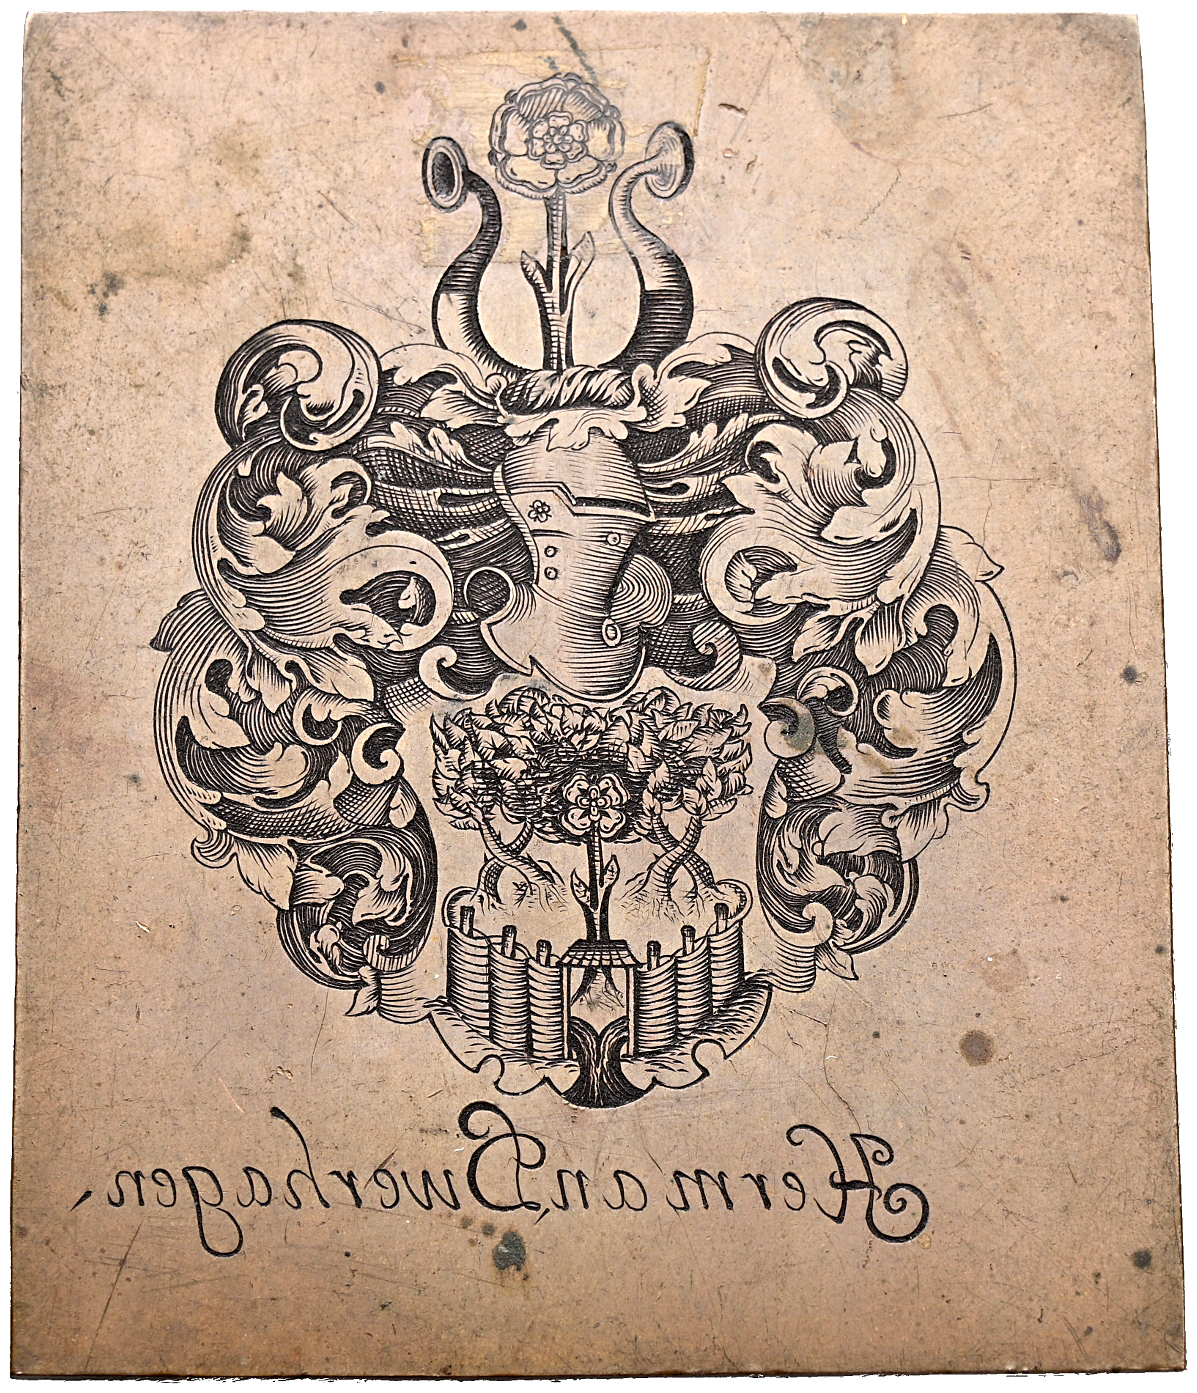 Herman, Ewerhagen,